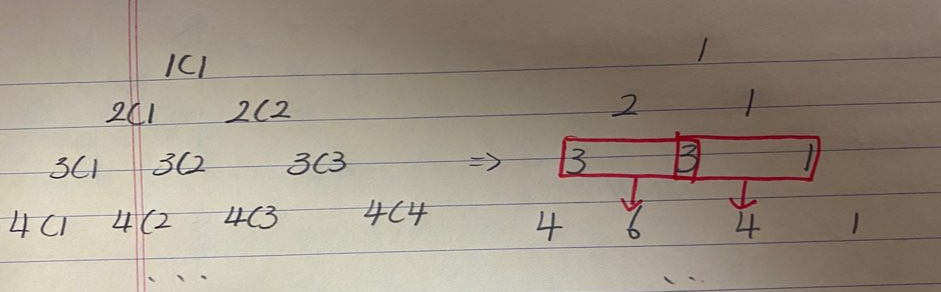 1C1 1
2C1 2C2 2 1
3C1 3C2 3C3 => 3 3 1
4C1 4C2 4C3 4C4 4 6 4 1
... ...